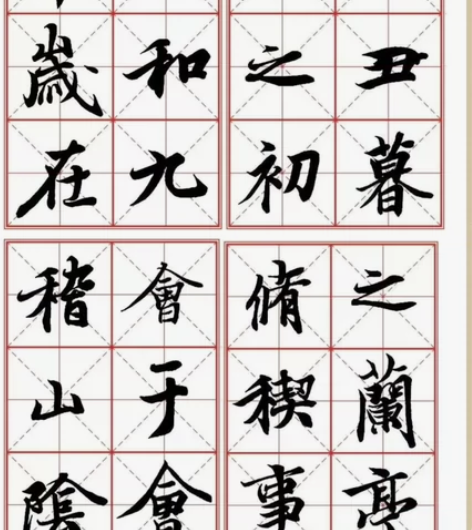 和九
歲在
丑暮
之初
會于會
稽山陰
之蘭亭
脩稧事